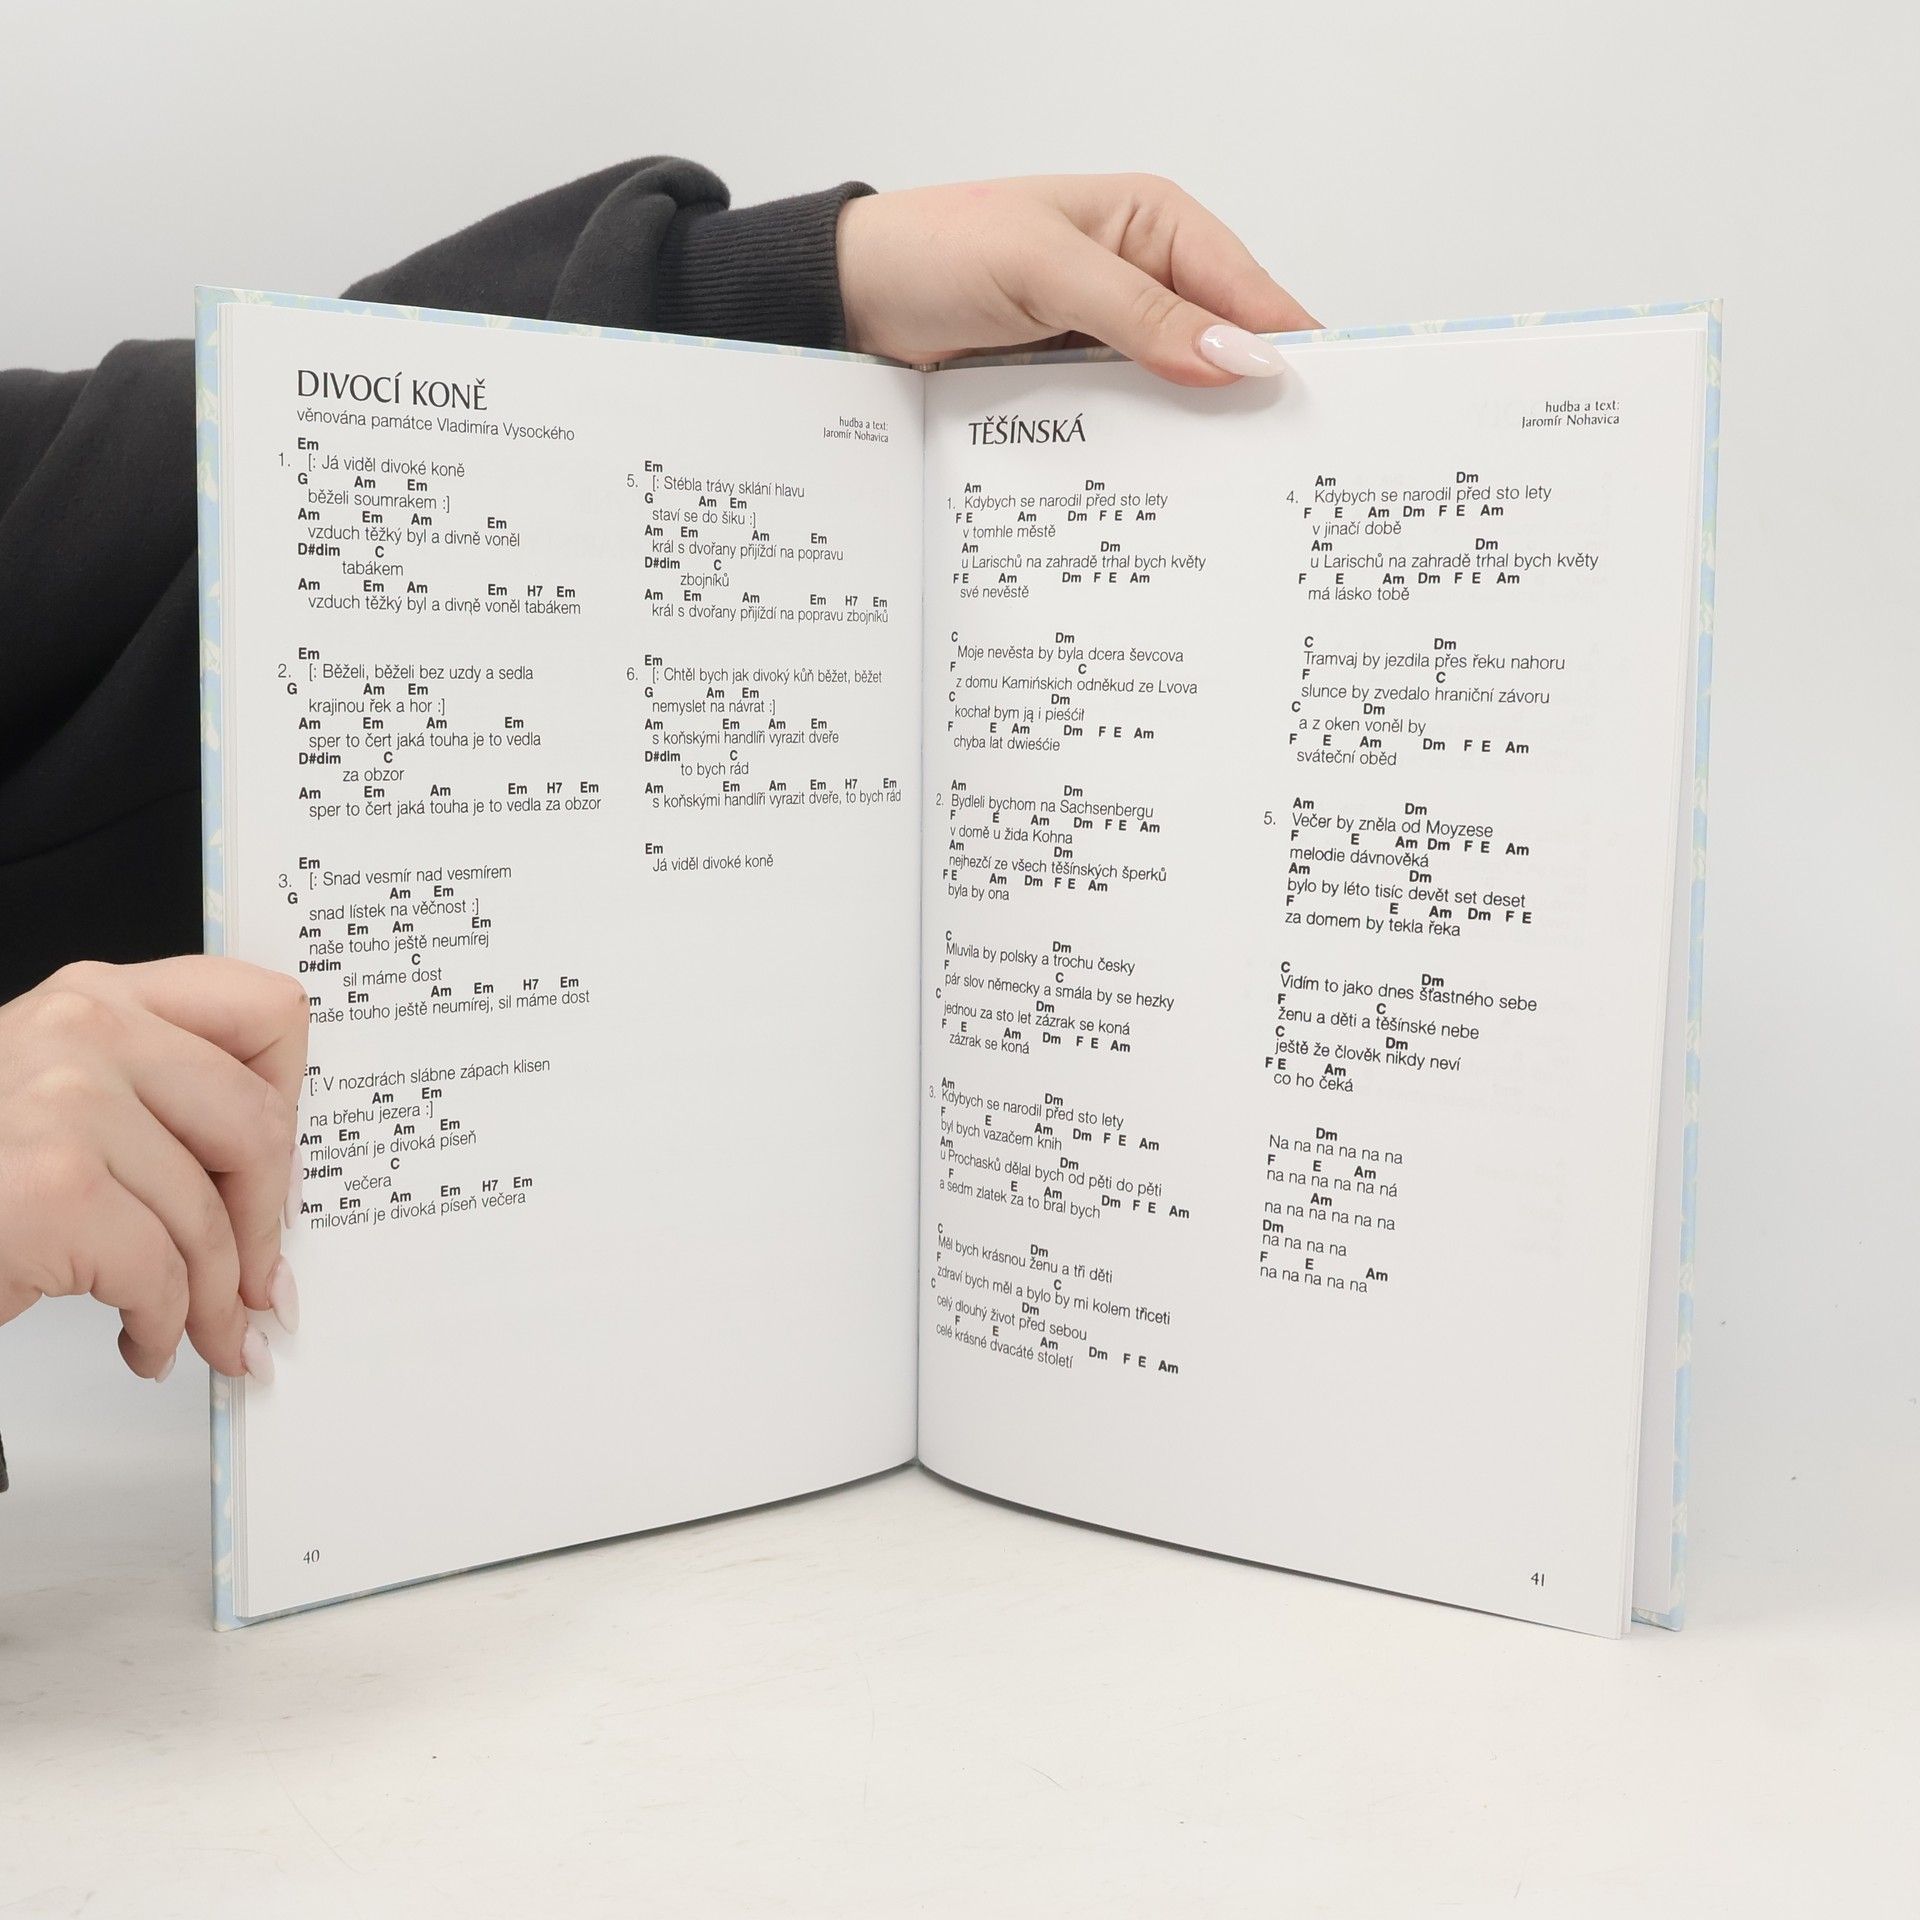 DIVOCÍ KONĚ
věnována památce Vladimíra Vysockého
hudba a text:
Jaromír Nohavica
Em
1. [: Já viděl divoké koně
G Am Em
běželi soumrakem :]
Am Em Am Em
vzduch těžký byl a divně voněl
D#dim C
tabákem
Am Em Am Em H7 Em
vzduch těžký byl a divně voněl tabákem
Em
2. [: Běželi, běželi bez uzdy a sedla
G Am Em
krajinou řek a hor :]
Am Em Am Em
sper to čert jaká touha je to vedla
D#dim C
za obzor
Am Em Am Em H7 Em
sper to čert jaká touha je to vedla za obzor
Em
3. [: Snad vesmír nad vesmírem
G Am Em
snad lístek na věčnost :]
Am Em Am Em
naše touho ještě neumírej
D#dim C
sil máme dost
m Em Am Em H7 Em
naše touho ještě neumírej, sil máme dost
Em
[: V nozdrách slábne zápach klisen
Am Em
na břehu jezera :]
Am Em Am Em
milování je divoká píseň
D#dim C
večera
Am Em Am Em H7 Em
milování je divoká píseň večera
Em
5. [: Stébla trávy sklání hlavu
G Am Em
staví se do šiku :]
Am Em Am Em
král s dvořany přijíždí na popravu
D#dim C
zbojníků
Am Em Am Em H7 Em
král s dvořany přijíždí na popravu zbojníků
Em
6. [: Chtěl bych jak divoký kůň běžet, běžet
G Am Em
nemyslet na návrat :]
Am Em Am Em
s koňskými handlíři vyrazit dveře
D#dim C
to bych rád
Am Em Am Em H7 Em
s koňskými handlíři vyrazit dveře, to bych rád
Em
Já viděl divoké koně
40
TĚŠÍNSKÁ
hudba a text:
Jaromír Nohavica
Am Dm
1. Kdybych se narodil před sto lety
F E Am Dm F E Am
v tomhle městě
Am Dm
u Larischů na zahradě trhal bych květy
F E Am Dm F E Am
své nevěstě
C Dm
Moje nevěsta by byla dcera ševcova
F C
z domu Kamińskich odněkud ze Lvova
C Dm
kochał bym ją i pieśćił
F E Am Dm F E Am
chyba lat dwieśćie
Am Dm
2. Bydleli bychom na Sachsenbergu
F E Am Dm F E Am
v domě u žida Kohna
Am Dm
nejhezčí ze všech těšínských šperků
F E Am Dm F E Am
byla by ona
C Dm
Mluvila by polsky a trochu česky
F C
pár slov německy a smála by se hezky
C Dm
jednou za sto let zázrak se koná
F E Am Dm F E Am
zázrak se koná
Am Dm
3. Kdybych se narodil před sto lety
F E Am Dm F E Am
byl bych vazačem knih
Am Dm
u Prochasků dělal bych od pěti do pěti
F E Am Dm F E Am
a sedm zlatek za to bral bych
C Dm
Měl bych krásnou ženu a tři děti
F C
zdraví bych měl a bylo by mi kolem třiceti
C Dm
celý dlouhý život před sebou
F E Am Dm F E Am
celé krásné dvacáté století
Am Dm
4. Kdybych se narodil před sto lety
F E Am Dm F E Am
v jinačí době
Am Dm
u Larischů na zahradě trhal bych květy
F E Am Dm F E Am
má lásko tobě
C Dm
Tramvaj by jezdila přes řeku nahoru
F C
slunce by zvedalo hraniční závoru
C Dm
a z oken voněl by
F E Am Dm F E Am
sváteční oběd
Am Dm
5. Večer by zněla od Moyzese
F E Am Dm F E Am
melodie dávnověká
Am Dm
bylo by léto tisíc devět set deset
F E Am Dm F E
za domem by tekla řeka
C Dm
Vidím to jako dnes šťastného sebe
F C
ženu a děti a těšínské nebe
C Dm
ještě že člověk nikdy neví
F E Am
co ho čeká
Dm
Na na na na na na
F E Am
na na na na na ná
Am
na na na na na na
Dm
na na na na
F E Am
na na na na na
41